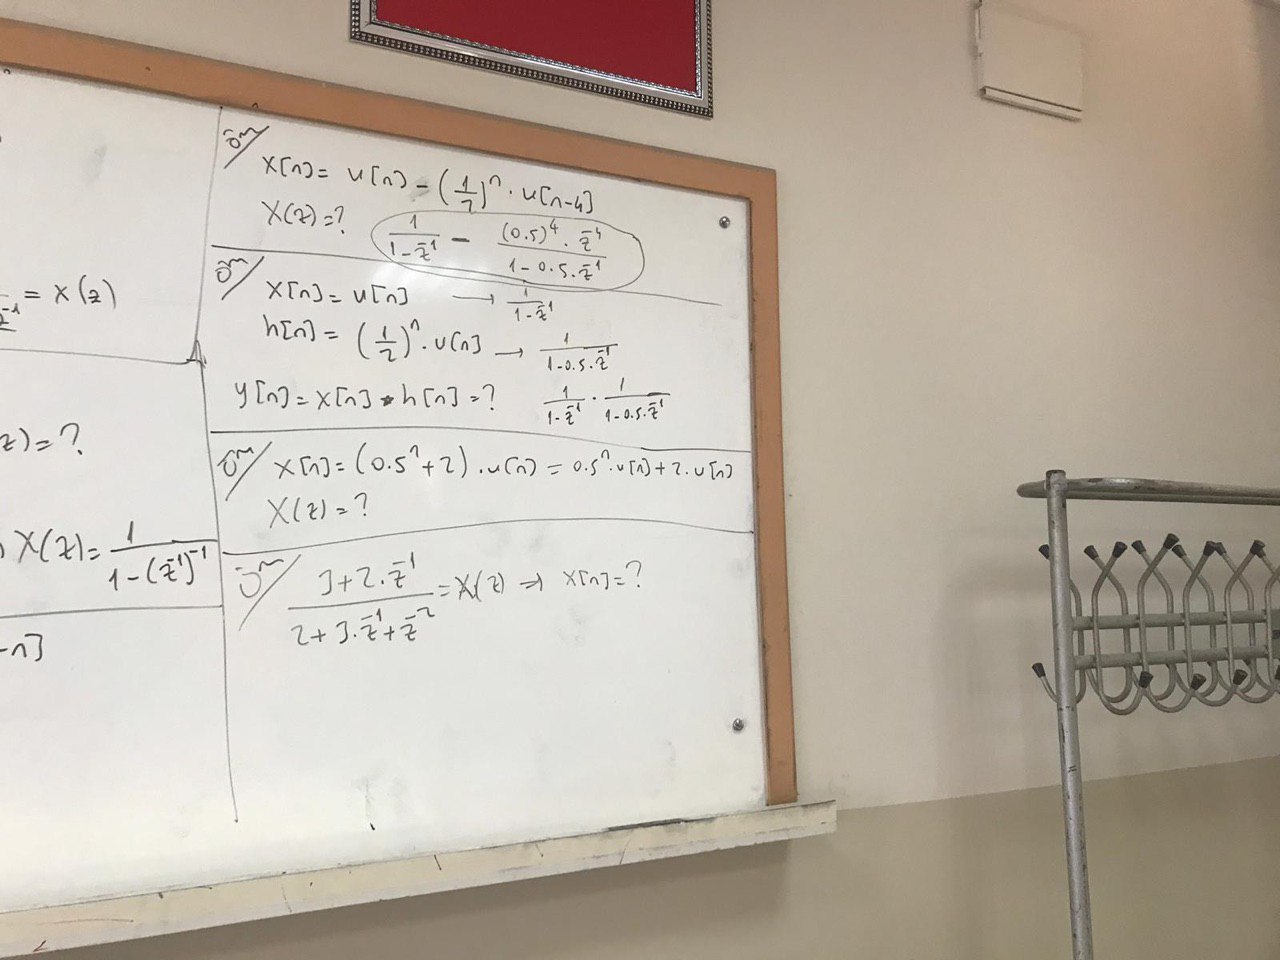 z⁻¹ = X(z)
z) = ?
X(z) = 1/(1-(z⁻¹)⁻¹)
-n]
Ör/
x[n] = u[n] - (1/2)ⁿ · u[n-4]
X(z) = ? 1/(1-z⁻¹) - (0.5)⁴ · z⁻⁴/(1-0.5·z⁻¹)
Ör/
x[n] = u[n] → 1/(1-z⁻¹)
h[n] = (1/2)ⁿ · u[n] → 1/(1-0.5·z⁻¹)
y[n] = x[n] * h[n] = ? 1/(1-z⁻¹) · 1/(1-0.5·z⁻¹)
Ör/ x[n] = (0.5ⁿ+2) · u[n] = 0.5ⁿ·u[n] + 2·u[n]
X(z) = ?
Ör/ (3+2·z⁻¹)/(2+3·z⁻¹+z⁻²) = X(z) ⇒ x[n] = ?